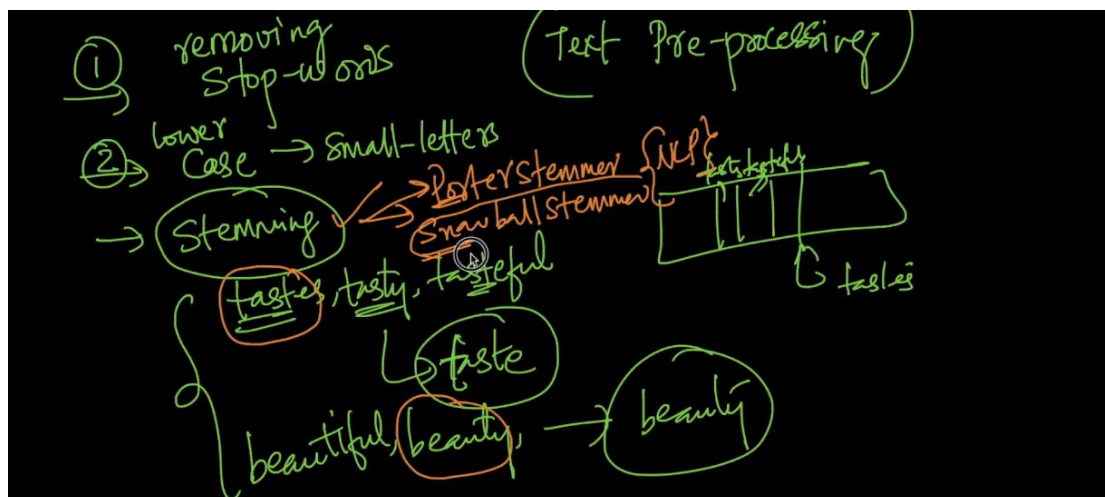 ① removing
Stop-words
Text Pre-processing
② lower
Case → Small-letters
→ Stemming
→ PorterStemmer
→ SnowballStemmer
{NLP}
tastes, tasty, tasteful
tastes
taste
beautiful, beauty, → beauty